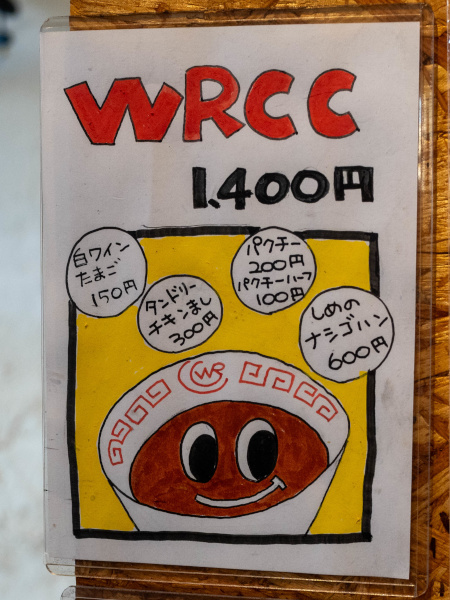 WRCC
1,400円
白ワイン
たまご
150円
タンドリー
チキンまし
300円
パクチー
200円
パクチーハーフ
100円
しめの
ナシゴレン
600円
WR